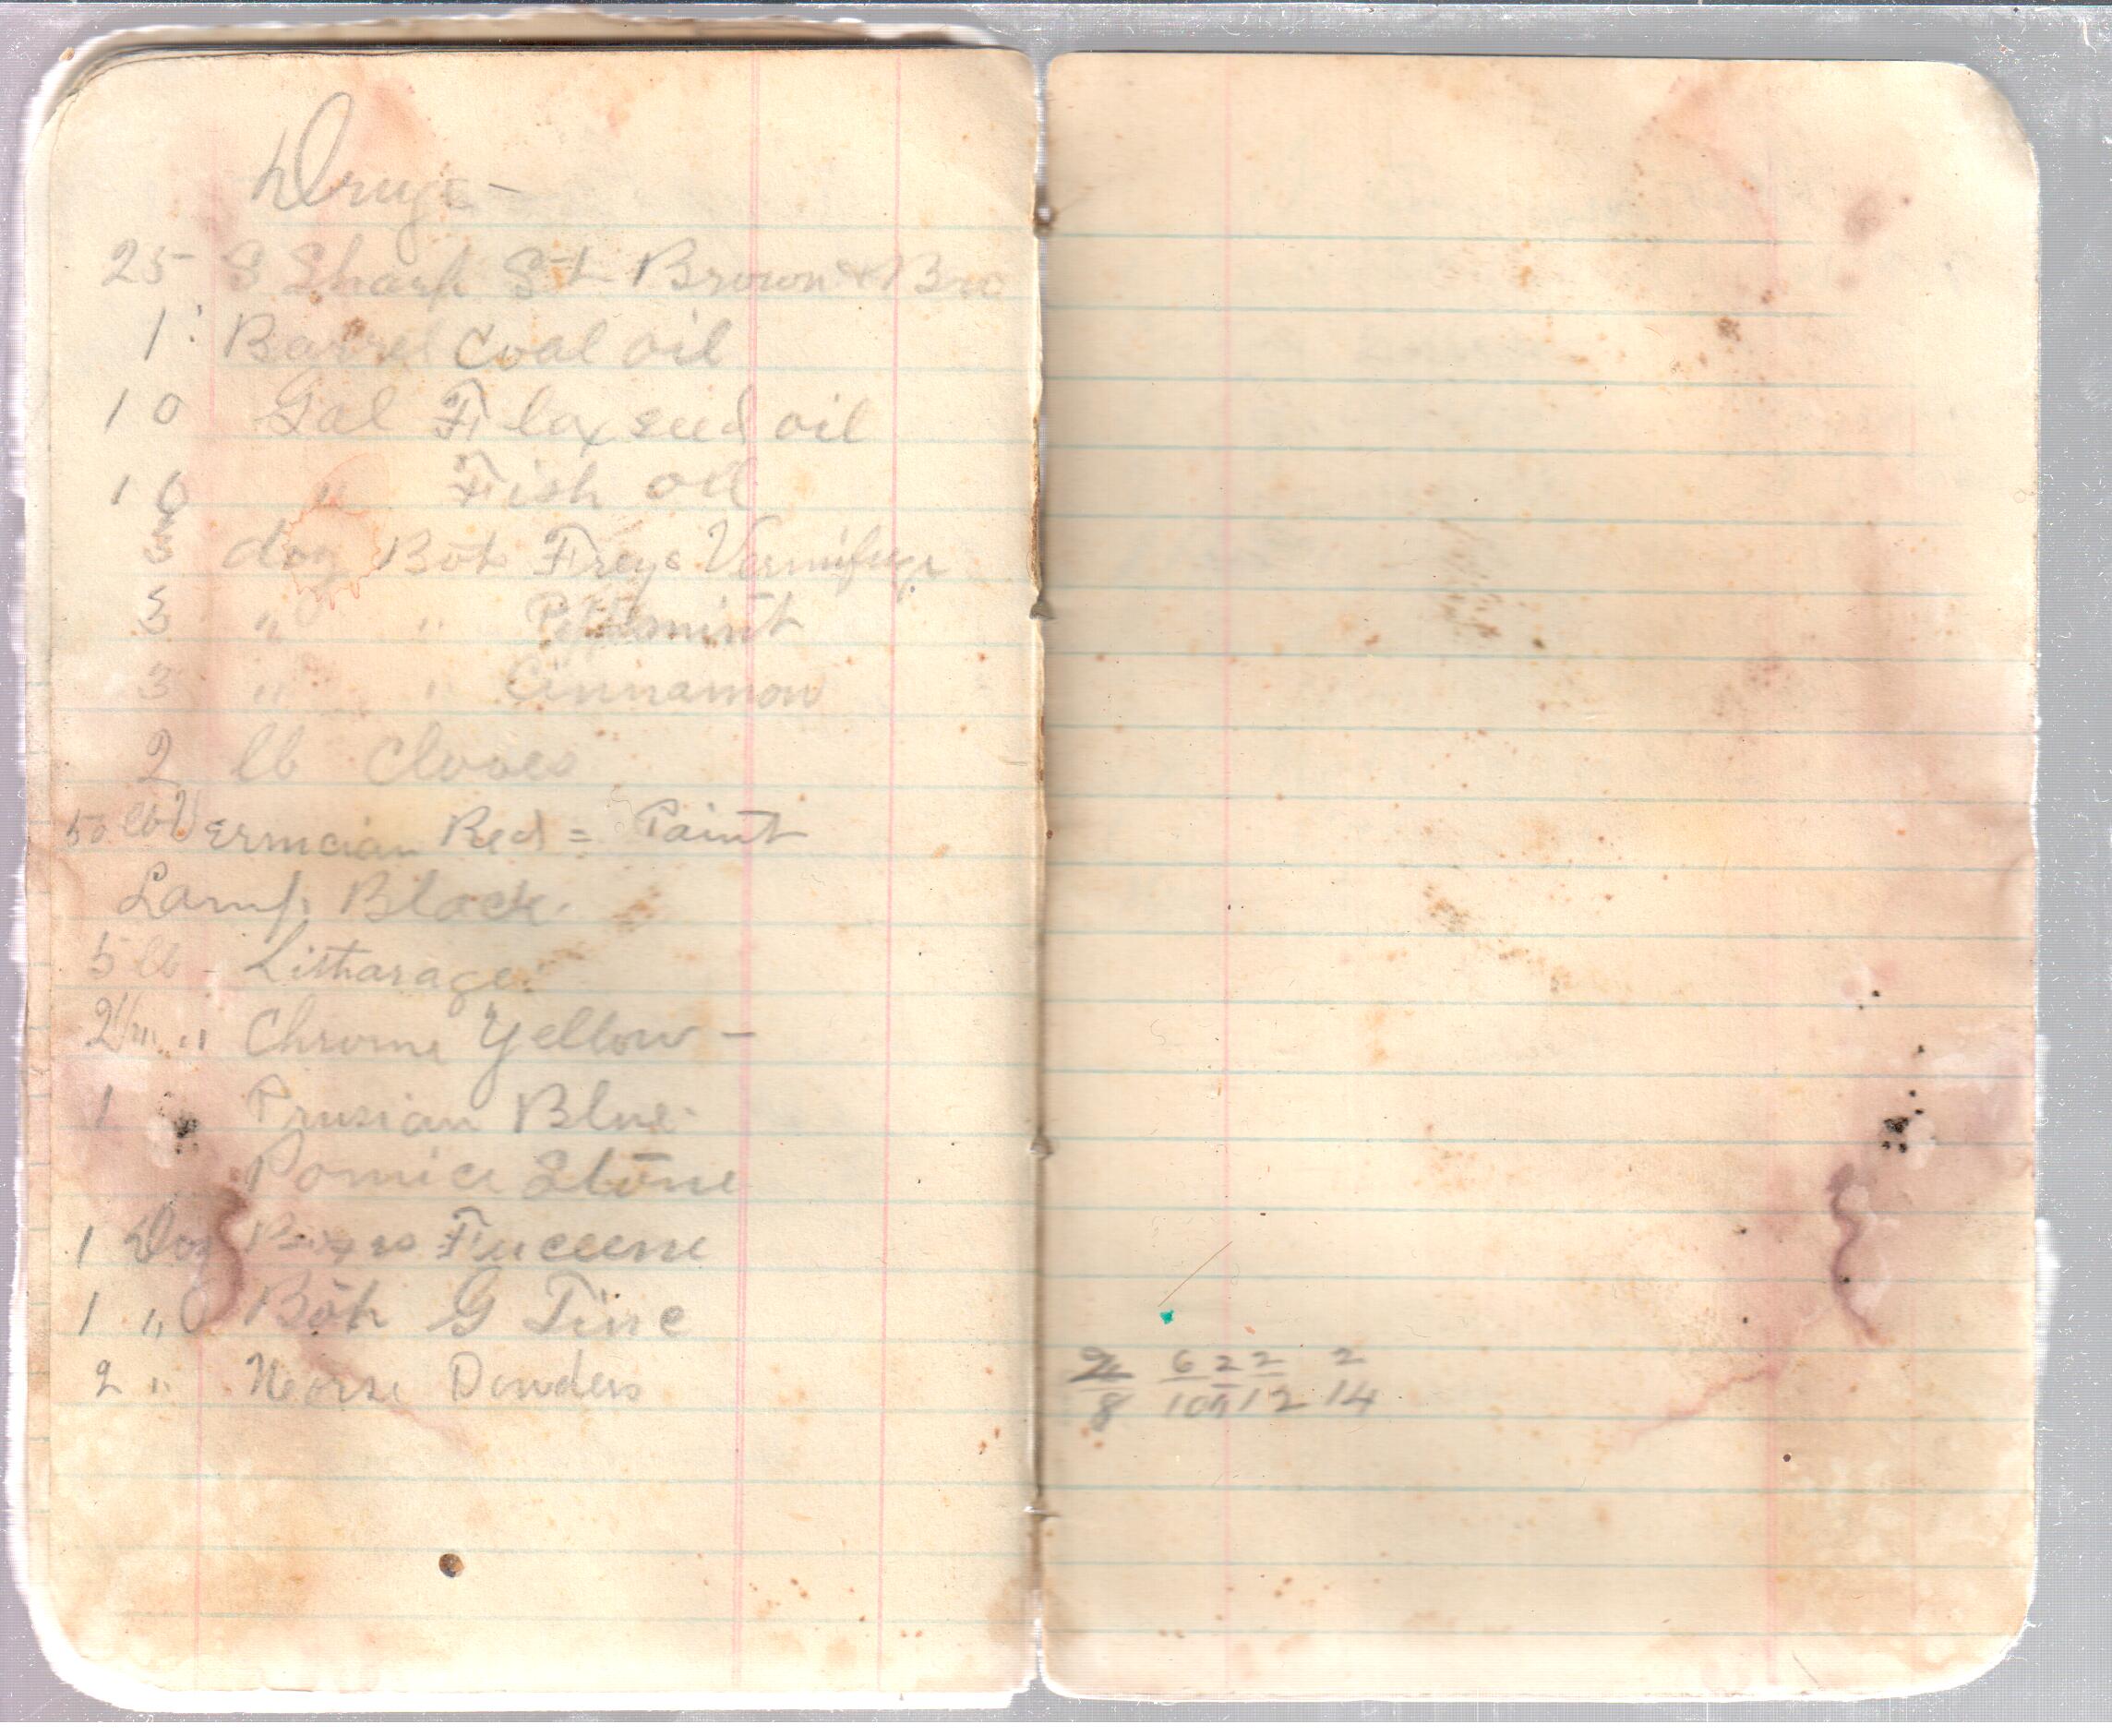 Drugs -
25 S Sharp St Brown & Bro
1 Barrel Coal oil
10 Gal Flaxseed oil
10 " Fish oil
3 doz Bot Freys Vermifuge
3 " " Peppermint
3 " " Cinnamon
2 lb Cloves
50 lb Vermcian Red = Paint
Lamp Black
5 lb - Litharage
" Chrome Yellow -
1 Prusian Blue
Pomice Stone
1 Doz
1 " Bot G
2 " Powders
6 2 2 2
8 10 12 14